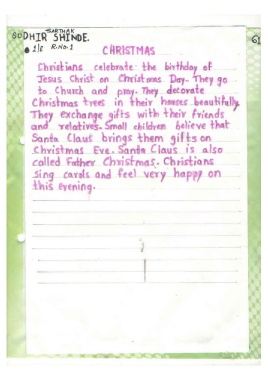 SARTHAK
SUDHIR SHINDE.
R.No.1
61
CHRISTMAS
Christians celebrate the birthday of
Jesus Christ on Christmas Day. They go
to Church and pray. They decorate
Christmas trees in their houses beautifully.
They exchange gifts with their friends
and relatives. Small children believe that
Santa Claus brings them gifts on
Christmas Eve. Santa Claus is also
called Father Christmas. Christians
sing carols and feel very happy on
this evening.